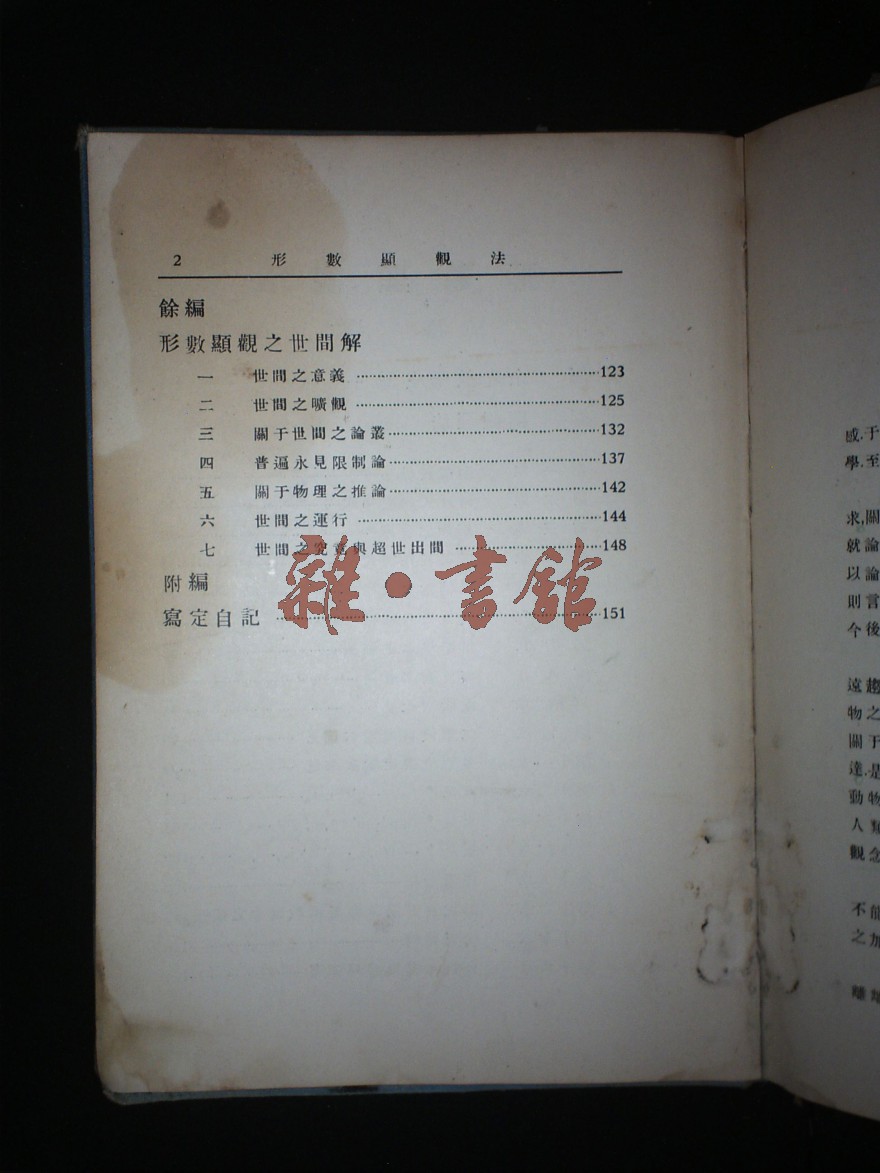 2 形數顯觀法
餘編
形數顯觀之世間解
一 世間之意義 123
二 世間之曠觀 125
三 關于世間之論叢 132
四 普遍永見限制論 137
五 關于物理之推論 142
六 世間之運行 144
七 世間之究竟與超世出間 148
附編
寫定自記 151
雜·書館
感.于
學.至
求,關
就論
以論
則言
今後
遠趨
物之
關于
達.是
動物
人類
觀念
不能
之加